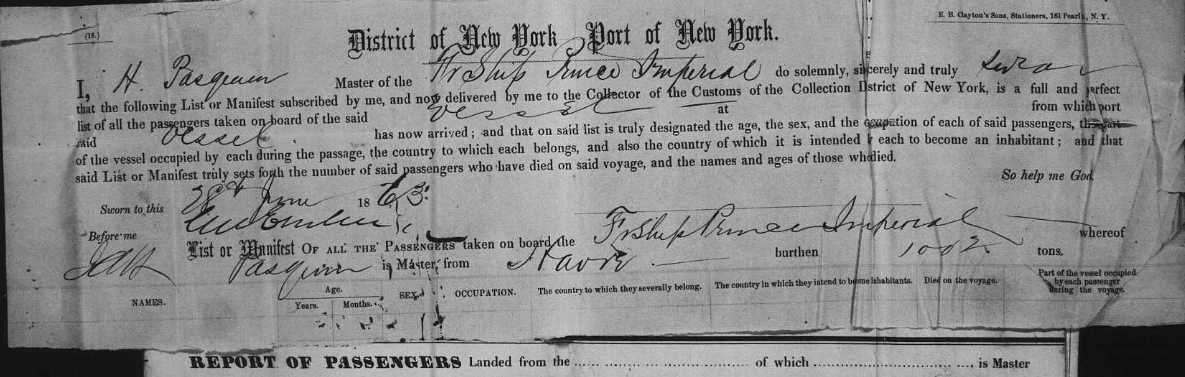 (18.)
E. B. Clayton's Sons, Stationers, 161 Pearl st., N. Y.
District of New York Port of New York.
I, H. Pasquier Master of the Fr Ship Prince Imperial do solemnly, sincerely and truly swear
that the following List or Manifest subscribed by me, and now delivered by me to the Collector of the Customs of the Collection District of New York, is a full and perfect
list of all the passengers taken on board of the said vessel at from which port
said vessel has now arrived; and that on said list is truly designated the age, the sex, and the ocupation of each of said passengers, the part
of the vessel occupied by each during the passage, the country to which each belongs, and also the country of which it is intended by each to become an inhabitant; and that
said List or Manifest truly sets forth the number of said passengers who have died on said voyage, and the names and ages of those who died.
So help me God.
Sworn to this 28th June 1863.
Before me
List or Manifest OF ALL THE PASSENGERS taken on board the Fr Ship Prince Imperial whereof
Pasquier is Master, from Havre burthen 1002 tons.
NAMES. Age. Years. Months. SEX. OCCUPATION. The country to which they severally belong. The country in which they intend to become inhabitants. Died on the voyage. Part of the vessel occupied by each passenger during the voyage.
REPORT OF PASSENGERS Landed from the of which is Master